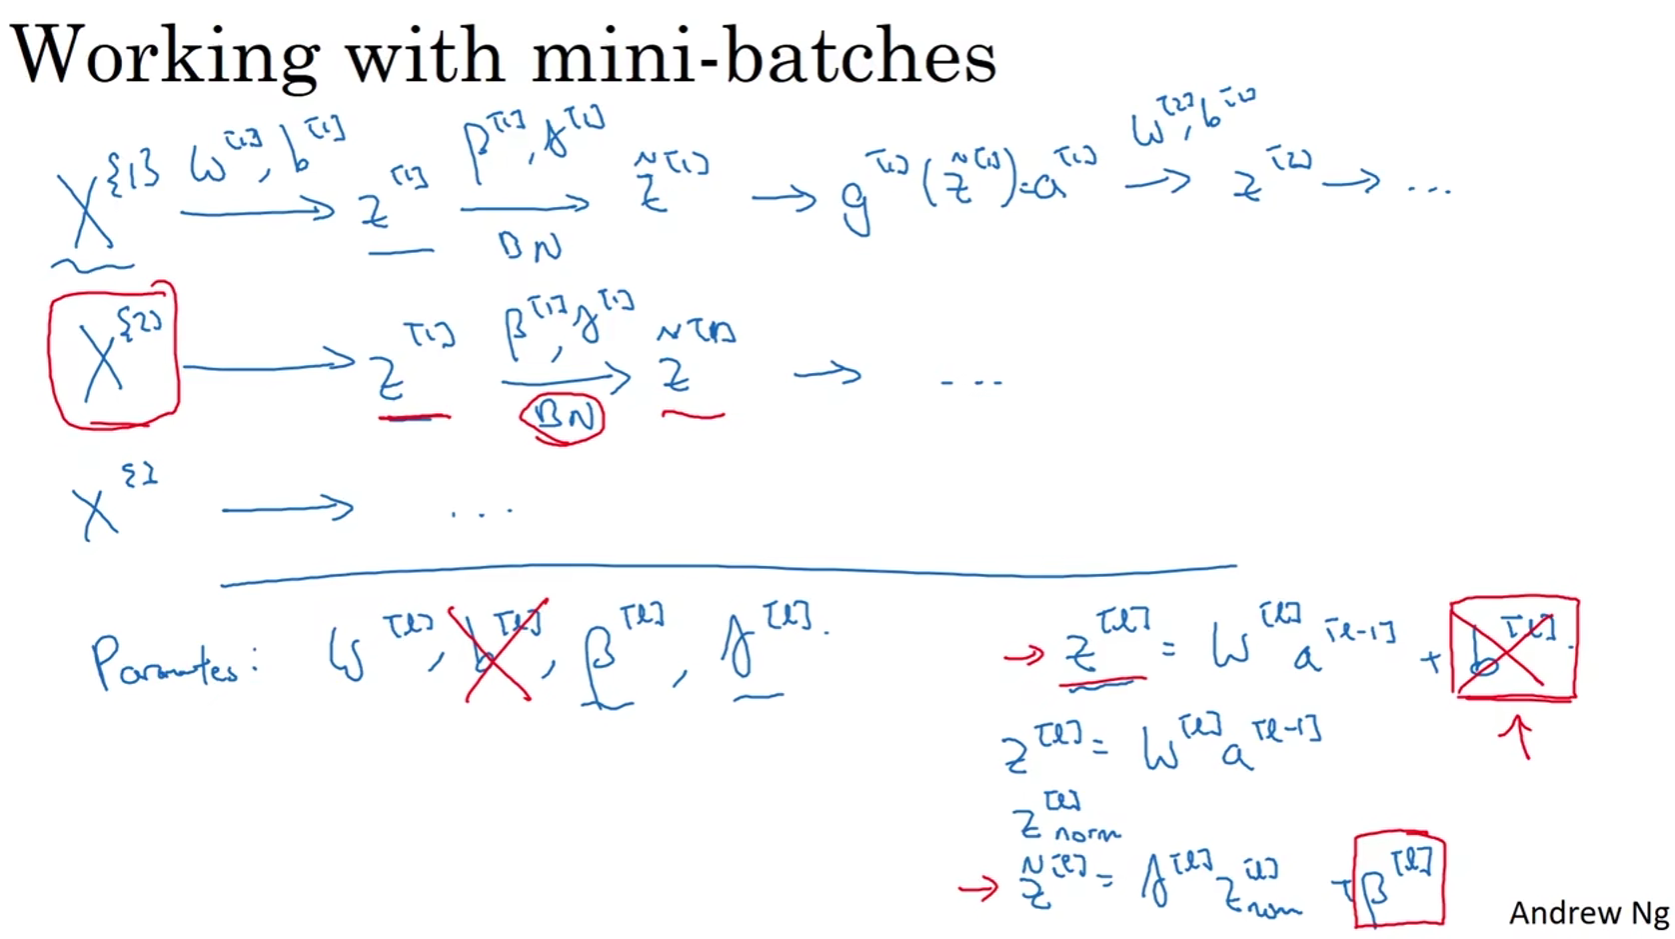 Working with mini-batches
X^{1} W^[1], b^[1] → z^[1] β^[1], γ^[1] → BN z̃^[1] → g^[1](z̃^[1]) = a^[1] W^[2], b^[2] → z^[2] → ...
X^{2} → z^[1] β^[1], γ^[1] → BN z̃^[1] → ...
X^{} → ...
Parameters: W^[l], b^[l], β^[l], γ^[l].
→ z^[l] = W^[l] a^[l-1] + b^[l].
z^[l] = W^[l] a^[l-1]
z^[l]_norm
→ z̃^[l] = γ^[l] z^[l]_norm + β^[l]
Andrew Ng